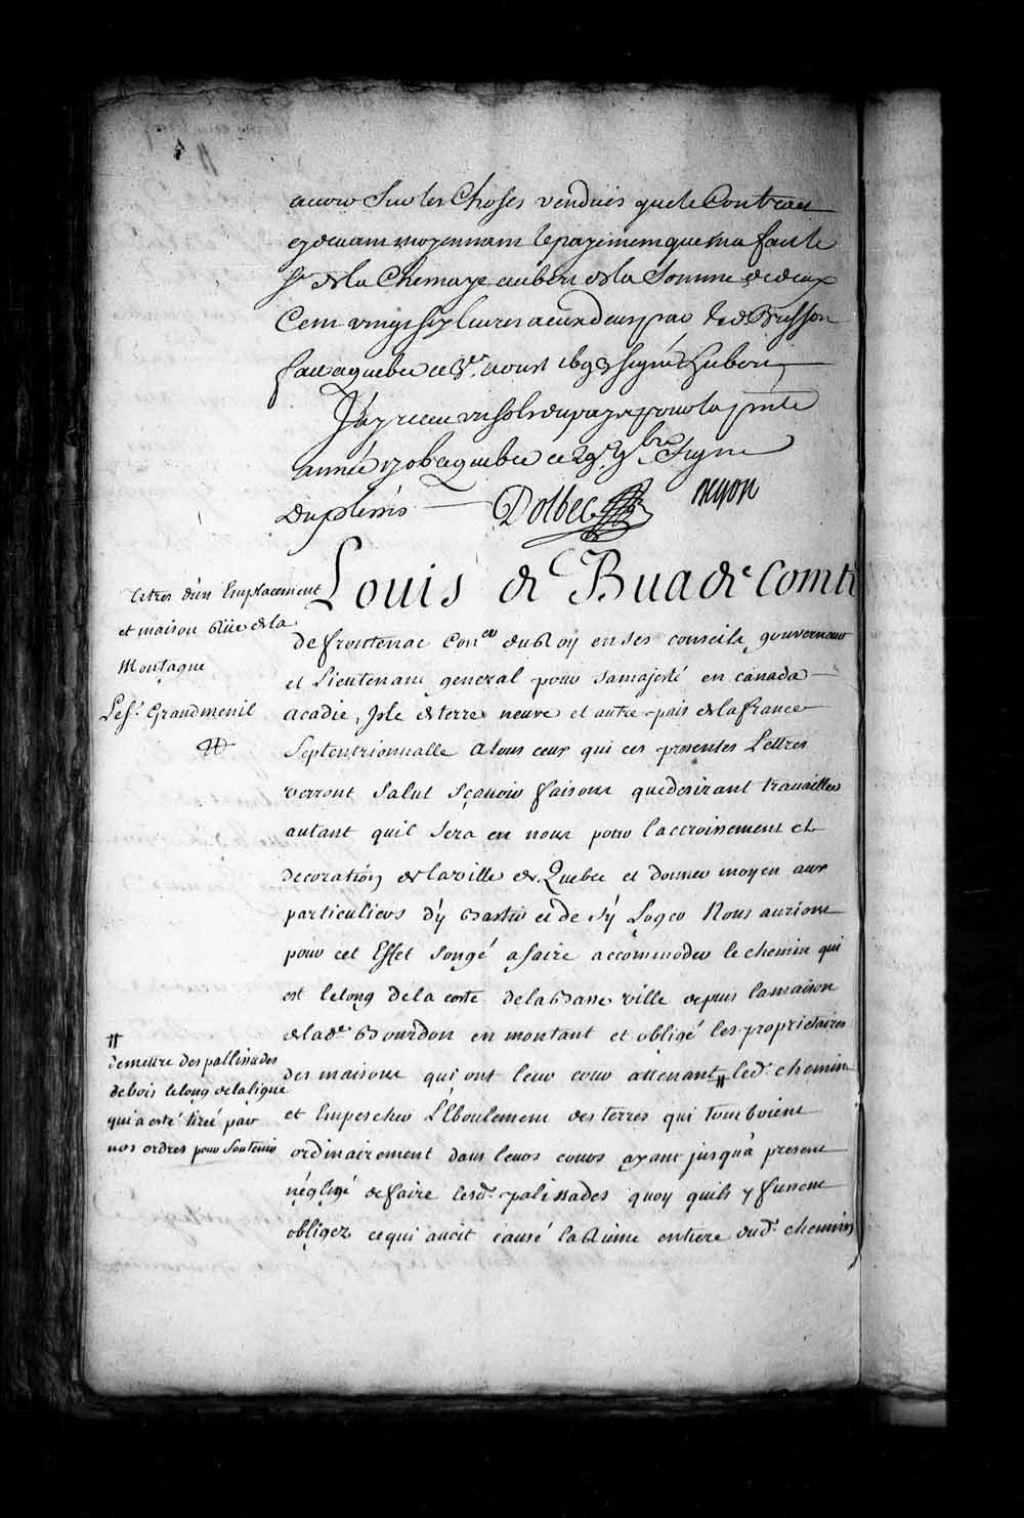 avoir Sur les Choses vendües que le Contract
cy devant moyennant le payement que m'a fait le
Sr de la Chenaye aubert de la Somme de deux
Cent vingt six livres acause par led Buisson
fait a quebec ce aoust 1693 signé hubert
J'ay receu vn sols du pays pour la pnte
année 1706 a quebec ce 29e 9bre Signé
Duplessis Dolbec neyon
Louis de Buade Comte
titres d'un Emplacement
et maison Rüe de la
Montagne
Le Sr. Grandmenil
de frontenac Coner du Roy en ses conseils, gouverneur
et Lieutenant general pour samajesté en canada
acadie, Isle de terre neuve et autre pais de la france
Septentrionnalle A tous ceux qui ces presentes Lettres
verront Salut Sçavoir faisons que desirant travailler
autant quil sera en nous pour l'accroissement et
decoration de la ville de Quebec et donner moyen aux
particuliers d'y Bastir et de s'y Loger Nous aurions
pour cet Effet songé a faire accommoder le chemin qui
est le long de la coste de la Basse ville depuis la maison
de la de. Bourdon en montant et obligé les proprietaires
des maisons qui ont leur cour attenant # led. chemin
#
de mettre des pallissades
de bois le long de la ligne
qui a esté tirée par
nos ordres pour Soutenir
et Empescher L'Eboulement des terres qui tomboient
ordinairement dans leurs cours ayant jusqu'a present
négligé de faire lesd. palissades quoy quils y fussent
obligez ce qui auoit causé la Ruine entiere dud. chemin